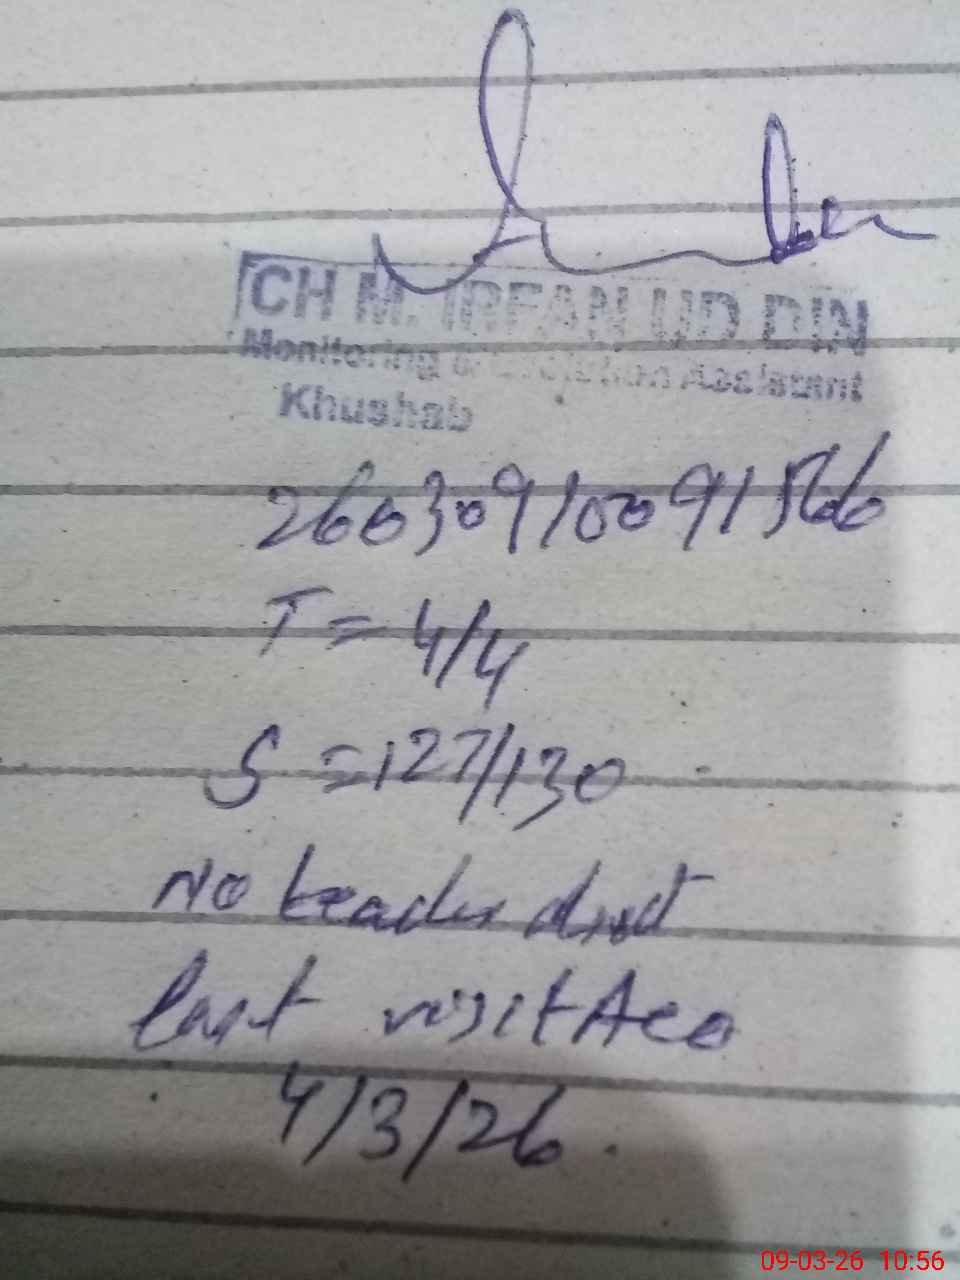 CH M. IRFAN UD DIN
Monitoring & Evaluation Assistant
Khushab
260309100091566
T = 4/4
S = 127/130
No teacher
last visit Aeo
4/3/26.
09-03-26 10:56